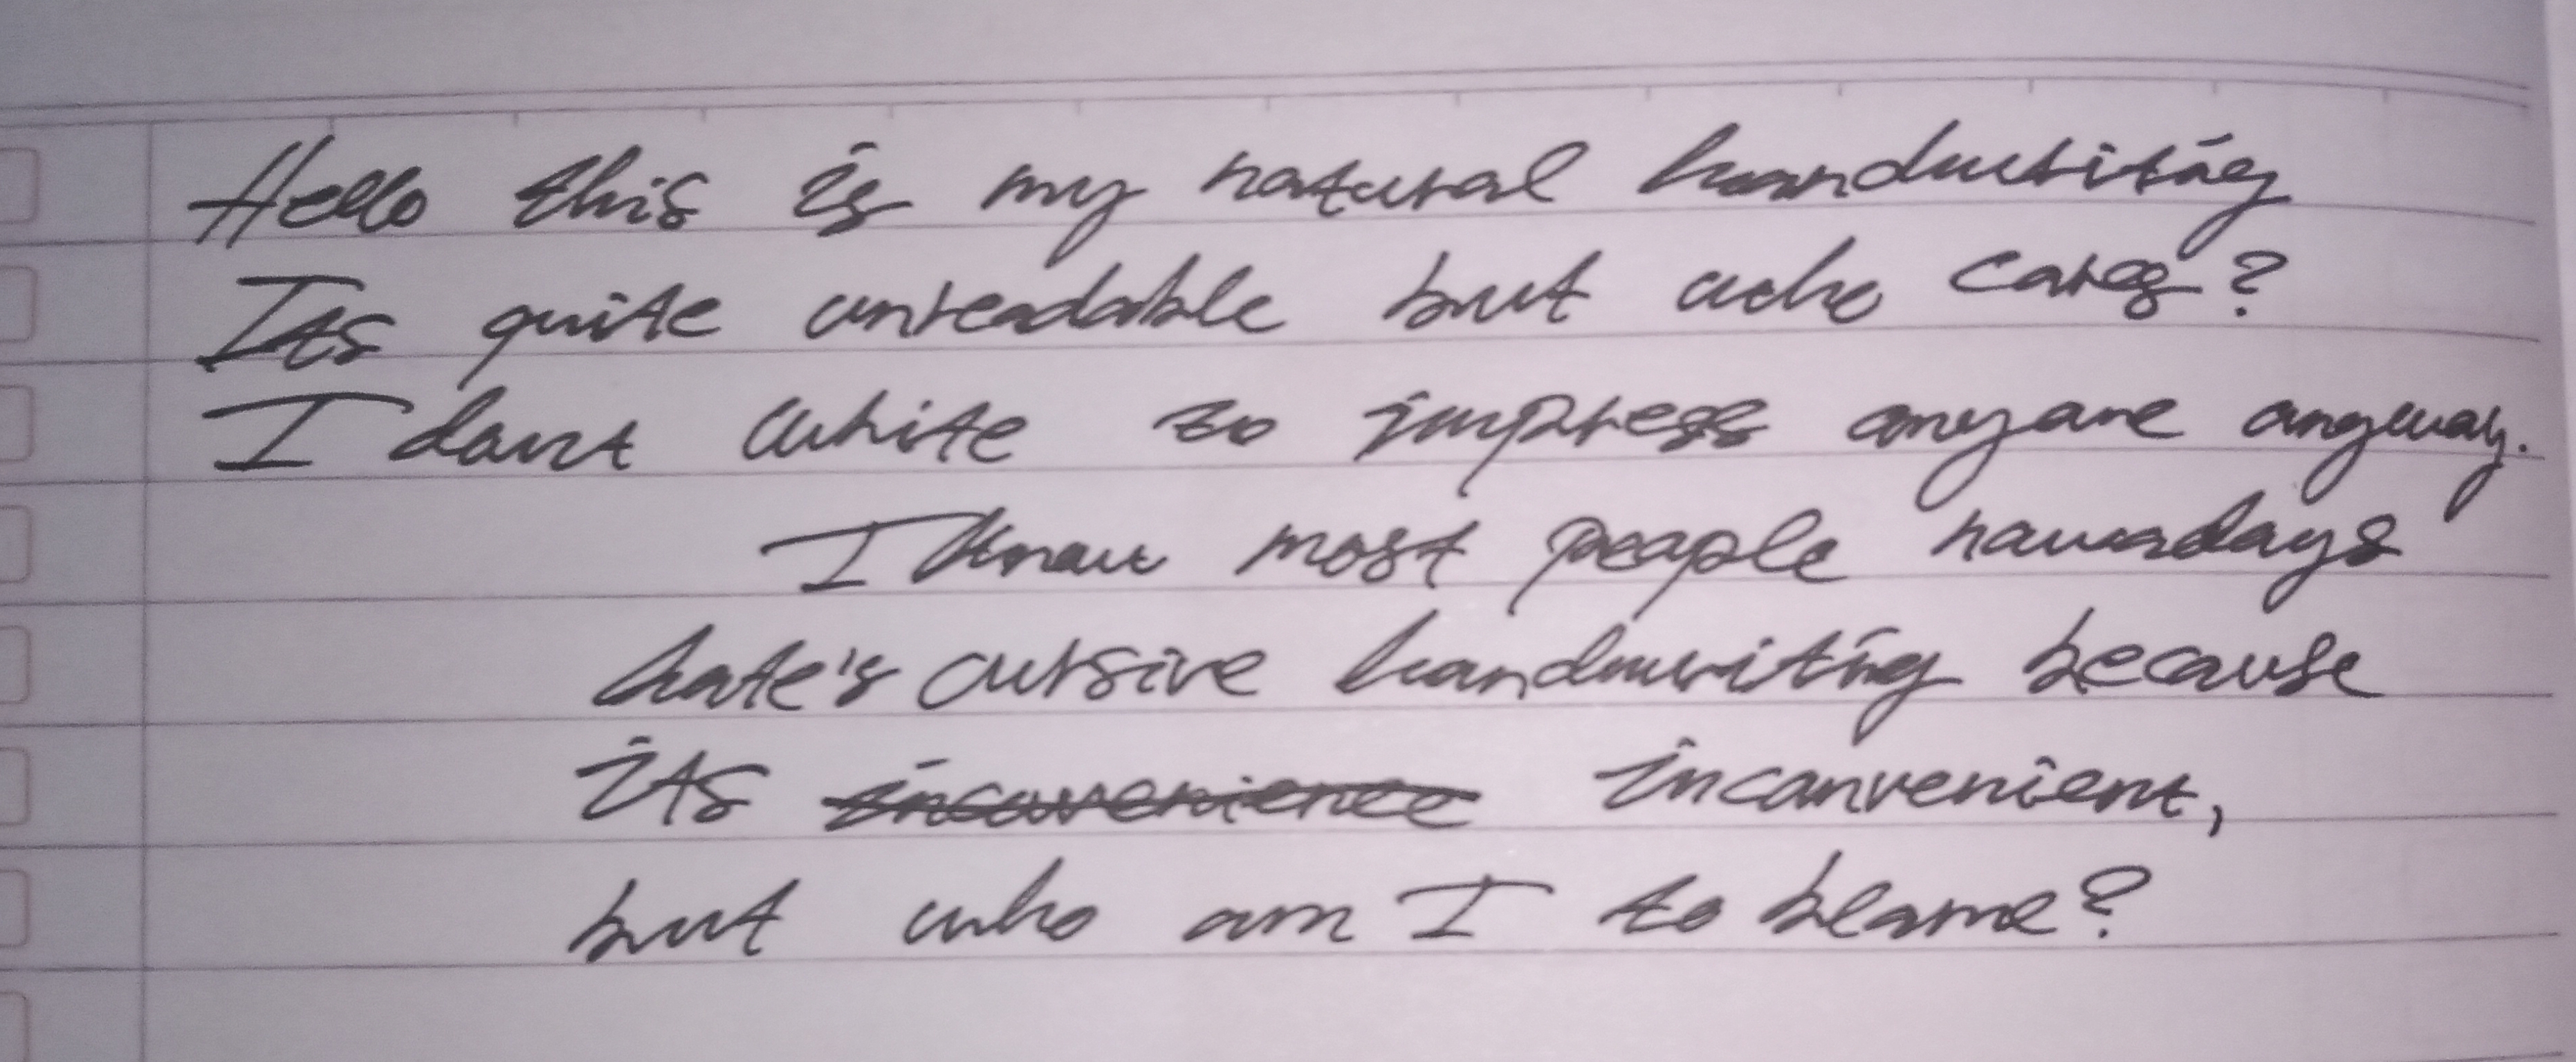 Hello this is my natural handwriting
Its quite unreadable but who cares?
I dont write to impress anyone anyway.
I know most people nowadays
hate's cursive handwriting because
its inconvenience inconvenient,
but who am I to blame?